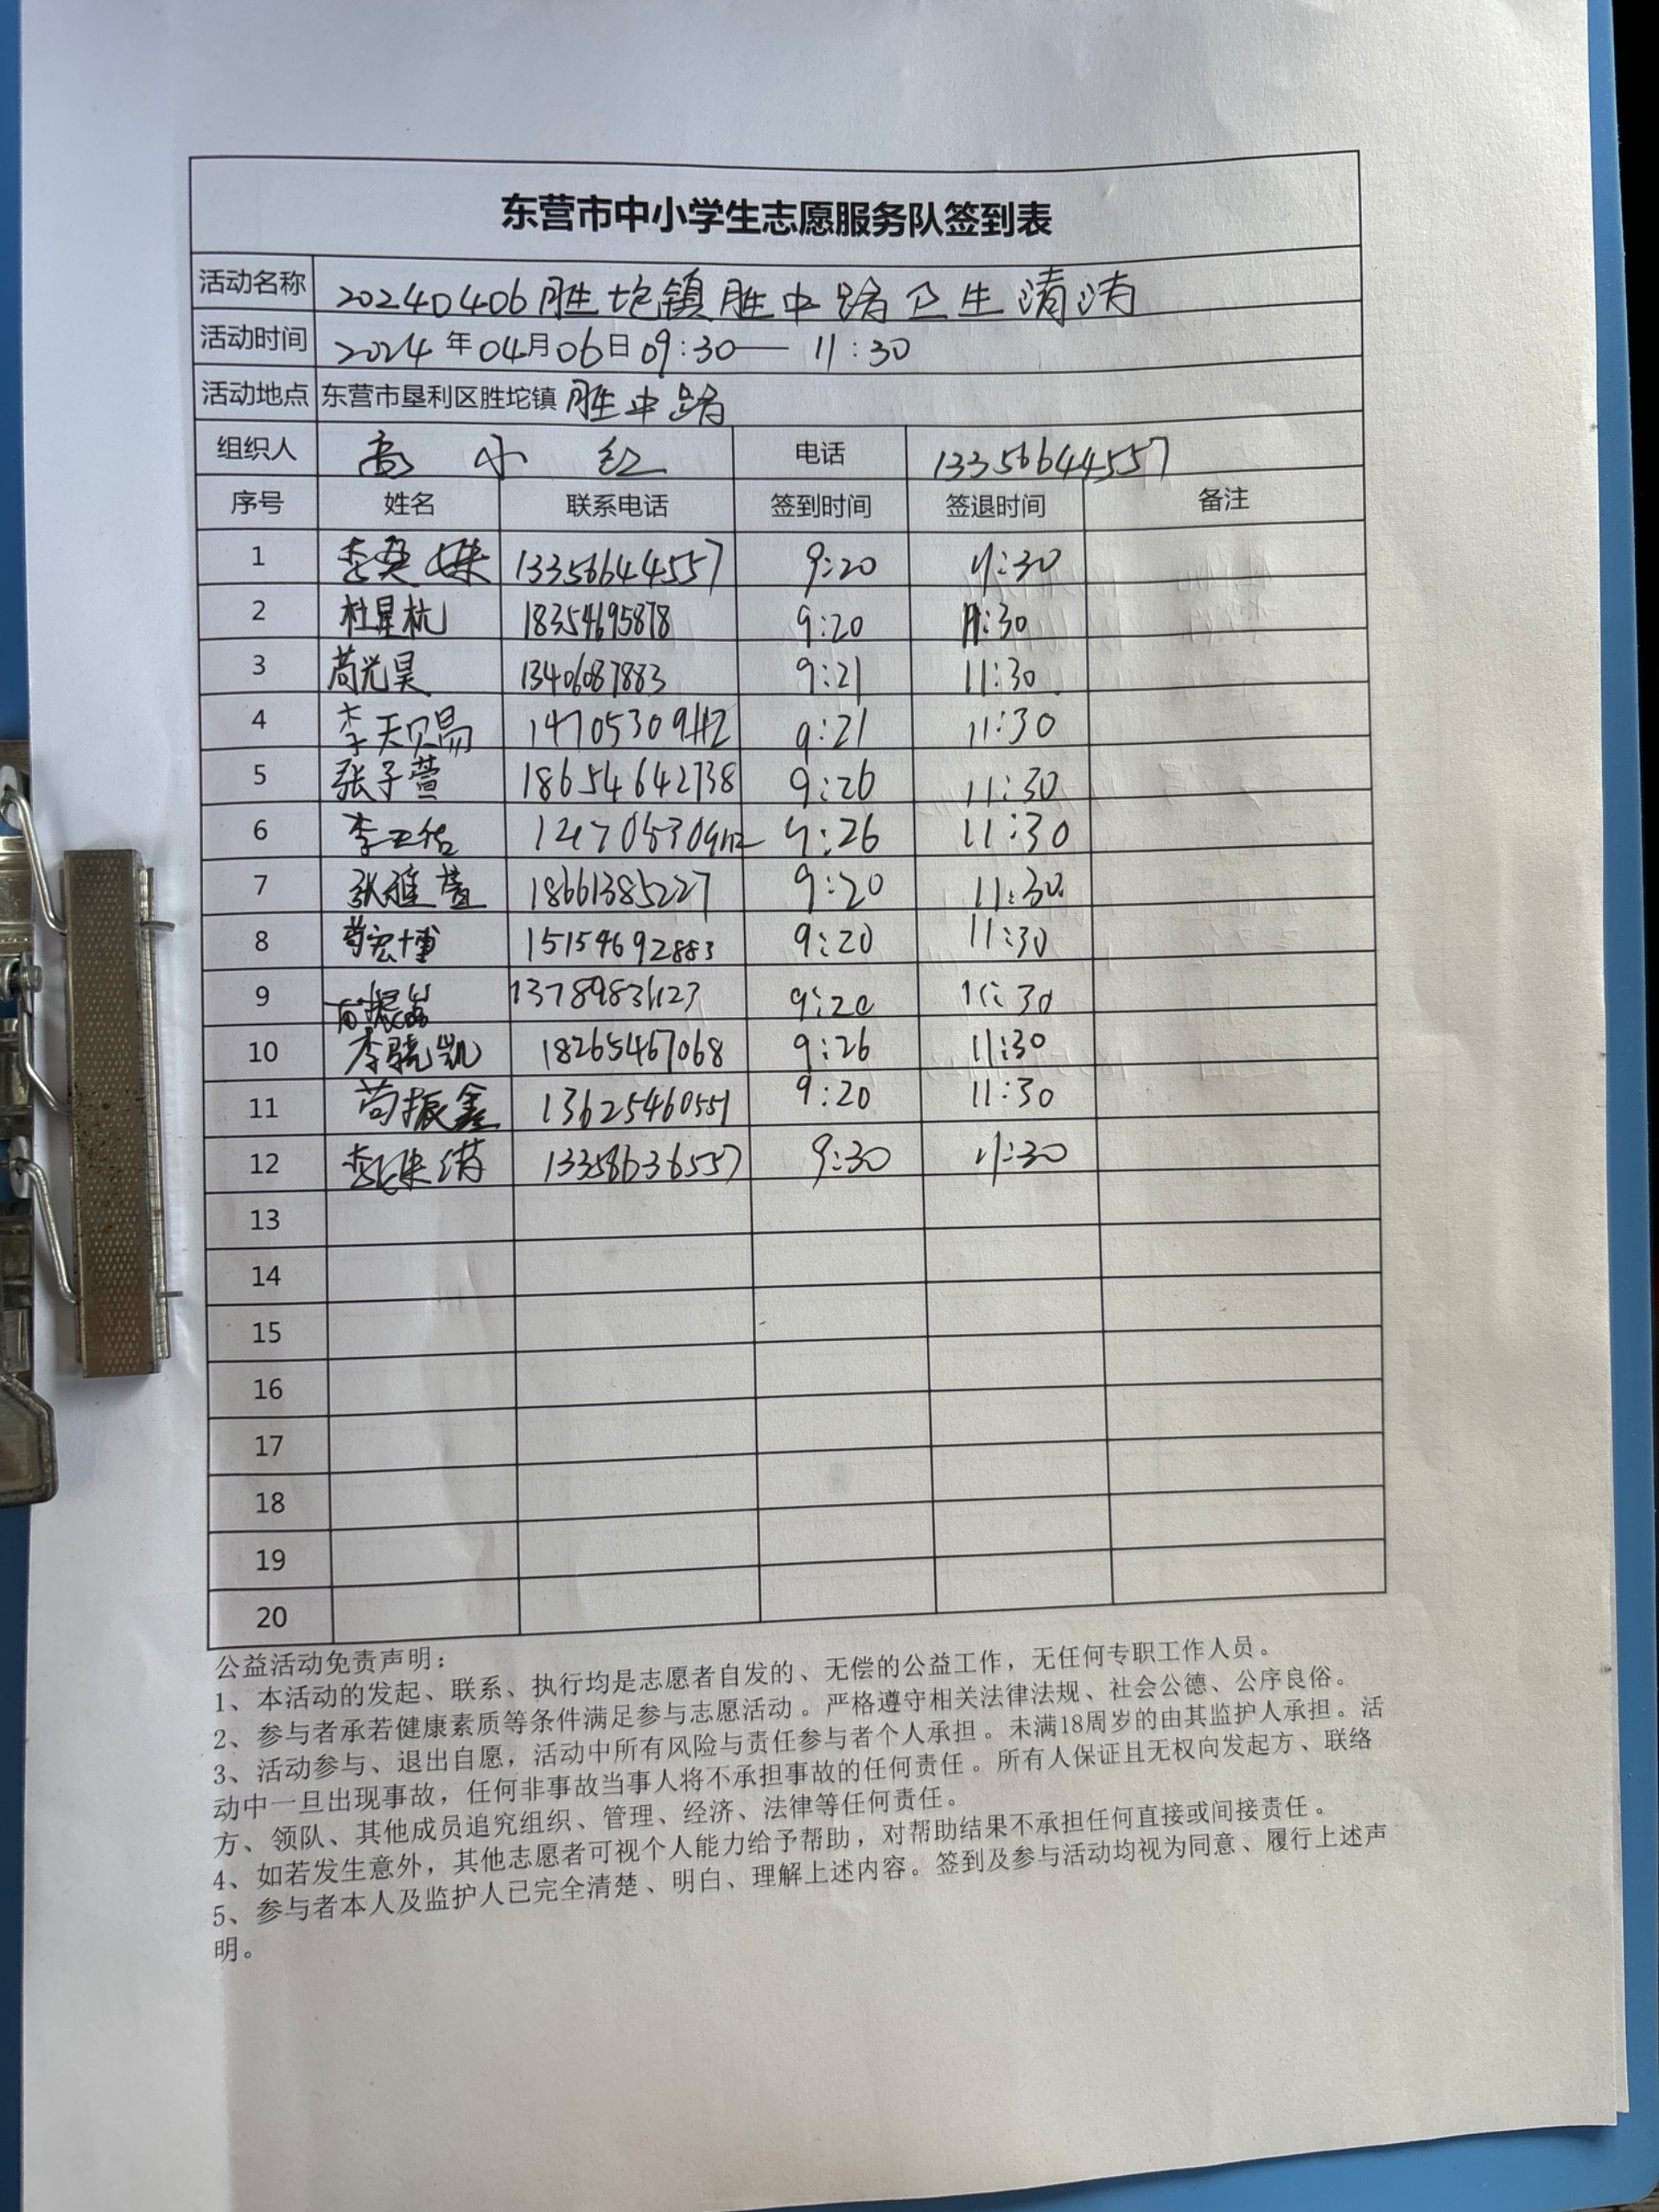 东营市中小学生志愿服务队签到表
活动名称 20240406胜坨镇胜中路卫生清洁
活动时间 2024年04月06日09:30—11:30
活动地点 东营市垦利区胜坨镇 胜中路
组织人 高小红 电话 13356644557
序号 姓名 联系电话 签到时间 签退时间 备注
1 李奕姝 13356644557 9:20 11:30
2 杜星杭 18354695878 9:20 11:30
3 苟光昊 13406087883 9:21 11:30
4 李天赐 9:21 11:30
5 张子萱 18654642738 9:26 11:30
6 李 9:26 11:30
7 张雅萱 18661385227 9:20 11:30
8 苟宏博 15154692883 9:20 11:30
9 苟振 9:20 11:30
10 李骁凯 18265467068 9:26 11:30
11 苟振鑫 13625460551 9:20 11:30
12 李 9:30 11:30
13
14
15
16
17
18
19
20
公益活动免责声明：
1、本活动的发起、联系、执行均是志愿者自发的、无偿的公益工作，无任何专职工作人员。
2、参与者承若健康素质等条件满足参与志愿活动。严格遵守相关法律法规、社会公德、公序良俗。
3、活动参与、退出自愿，活动中所有风险与责任参与者个人承担。未满18周岁的由其监护人承担。活
动中一旦出现事故，任何非事故当事人将不承担事故的任何责任。所有人保证且无权向发起方、联络
方、领队、其他成员追究组织、管理、经济、法律等任何责任。
4、如若发生意外，其他志愿者可视个人能力给予帮助，对帮助结果不承担任何直接或间接责任。
5、参与者本人及监护人已完全清楚、明白、理解上述内容。签到及参与活动均视为同意、履行上述声
明。